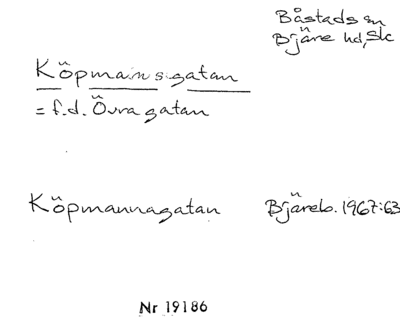 Båstads sn
Bjäre hd, Skc
Köpmansgatan
= f.d. Övra gatan
Köpmannagatan Bjäreb. 1967:63
Nr 19186